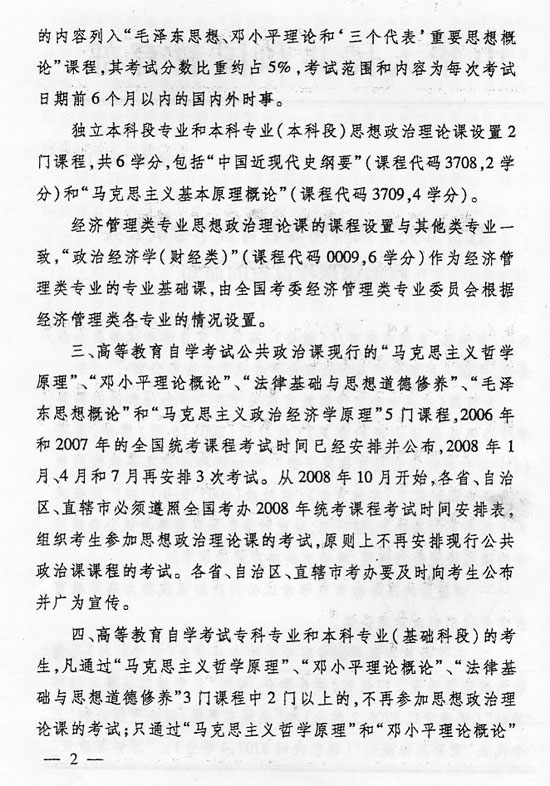 的内容列入“毛泽东思想、邓小平理论和‘三个代表’重要思想概
论”课程,其考试分数比重约占5%,考试范围和内容为每次考试
日期前6个月以内的国内外时事。
独立本科段专业和本科专业(本科段)思想政治理论课设置2
门课程,共6学分,包括“中国近现代史纲要”(课程代码3708,2学
分)和“马克思主义基本原理概论”(课程代码3709,4学分)。
经济管理类专业思想政治理论课的课程设置与其他类专业一
致,“政治经济学(财经类)”(课程代码0009,6学分)作为经济管
理类专业的专业基础课,由全国考委经济管理类专业委员会根据
经济管理类各专业的情况设置。
三、高等教育自学考试公共政治课现行的“马克思主义哲学
原理”、“邓小平理论概论”、“法律基础与思想道德修养”、“毛泽
东思想概论”和“马克思主义政治经济学原理”5门课程,2006年
和2007年的全国统考课程考试时间已经安排并公布,2008年1
月、4月和7月再安排3次考试。从2008年10月开始,各省、自治
区、直辖市必须遵照全国考办2008年统考课程考试时间安排表,
组织考生参加思想政治理论课的考试,原则上不再安排现行公共
政治课课程的考试。各省、自治区、直辖市考办要及时向考生公布
并广为宣传。
四、高等教育自学考试专科专业和本科专业(基础科段)的考
生,凡通过“马克思主义哲学原理”、“邓小平理论概论”、“法律基
础与思想道德修养”3门课程中2门以上的,不再参加思想政治理
论课的考试;只通过“马克思主义哲学原理”和“邓小平理论概论”
— 2 —